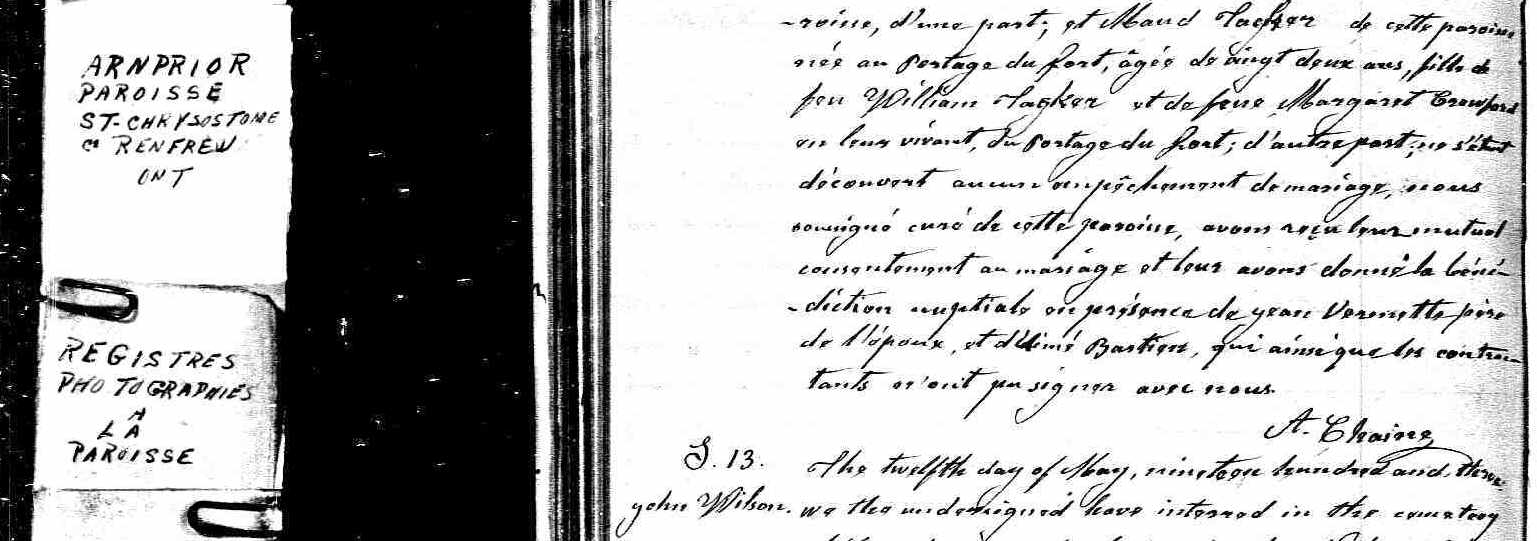 ARNPRIOR
PAROISSE
ST-CHRYSOSTOME
RENFREW
ONT
REGISTRES
PHOTOGRAPHIES
A
LA
PAROISSE
-roisse, d'une part; et Maud Tasker de cette paroisse
née au Portage du fort, âgée de vingt deux ans, fille de
feu William Tasker et de feue Margaret Crawford
en leur vivant, du Portage du fort; d'autre part; ne s'étant
découvert aucun empêchement de mariage, nous
soussigné curé de cette paroisse, avons reçu leur mutuel
consentement au mariage et leur avons donné la béné-
-diction nuptiale en présence de Jean Vermette père
de l'époux, et d'Aimé Bastien, qui ainsi que les contrac-
tants n'ont pu signer avec nous.
A. Chaine
S. 13.
John Wilson.
The twelfth day of May, nineteen hundred and three
we the undersigned have interred in the cemetery